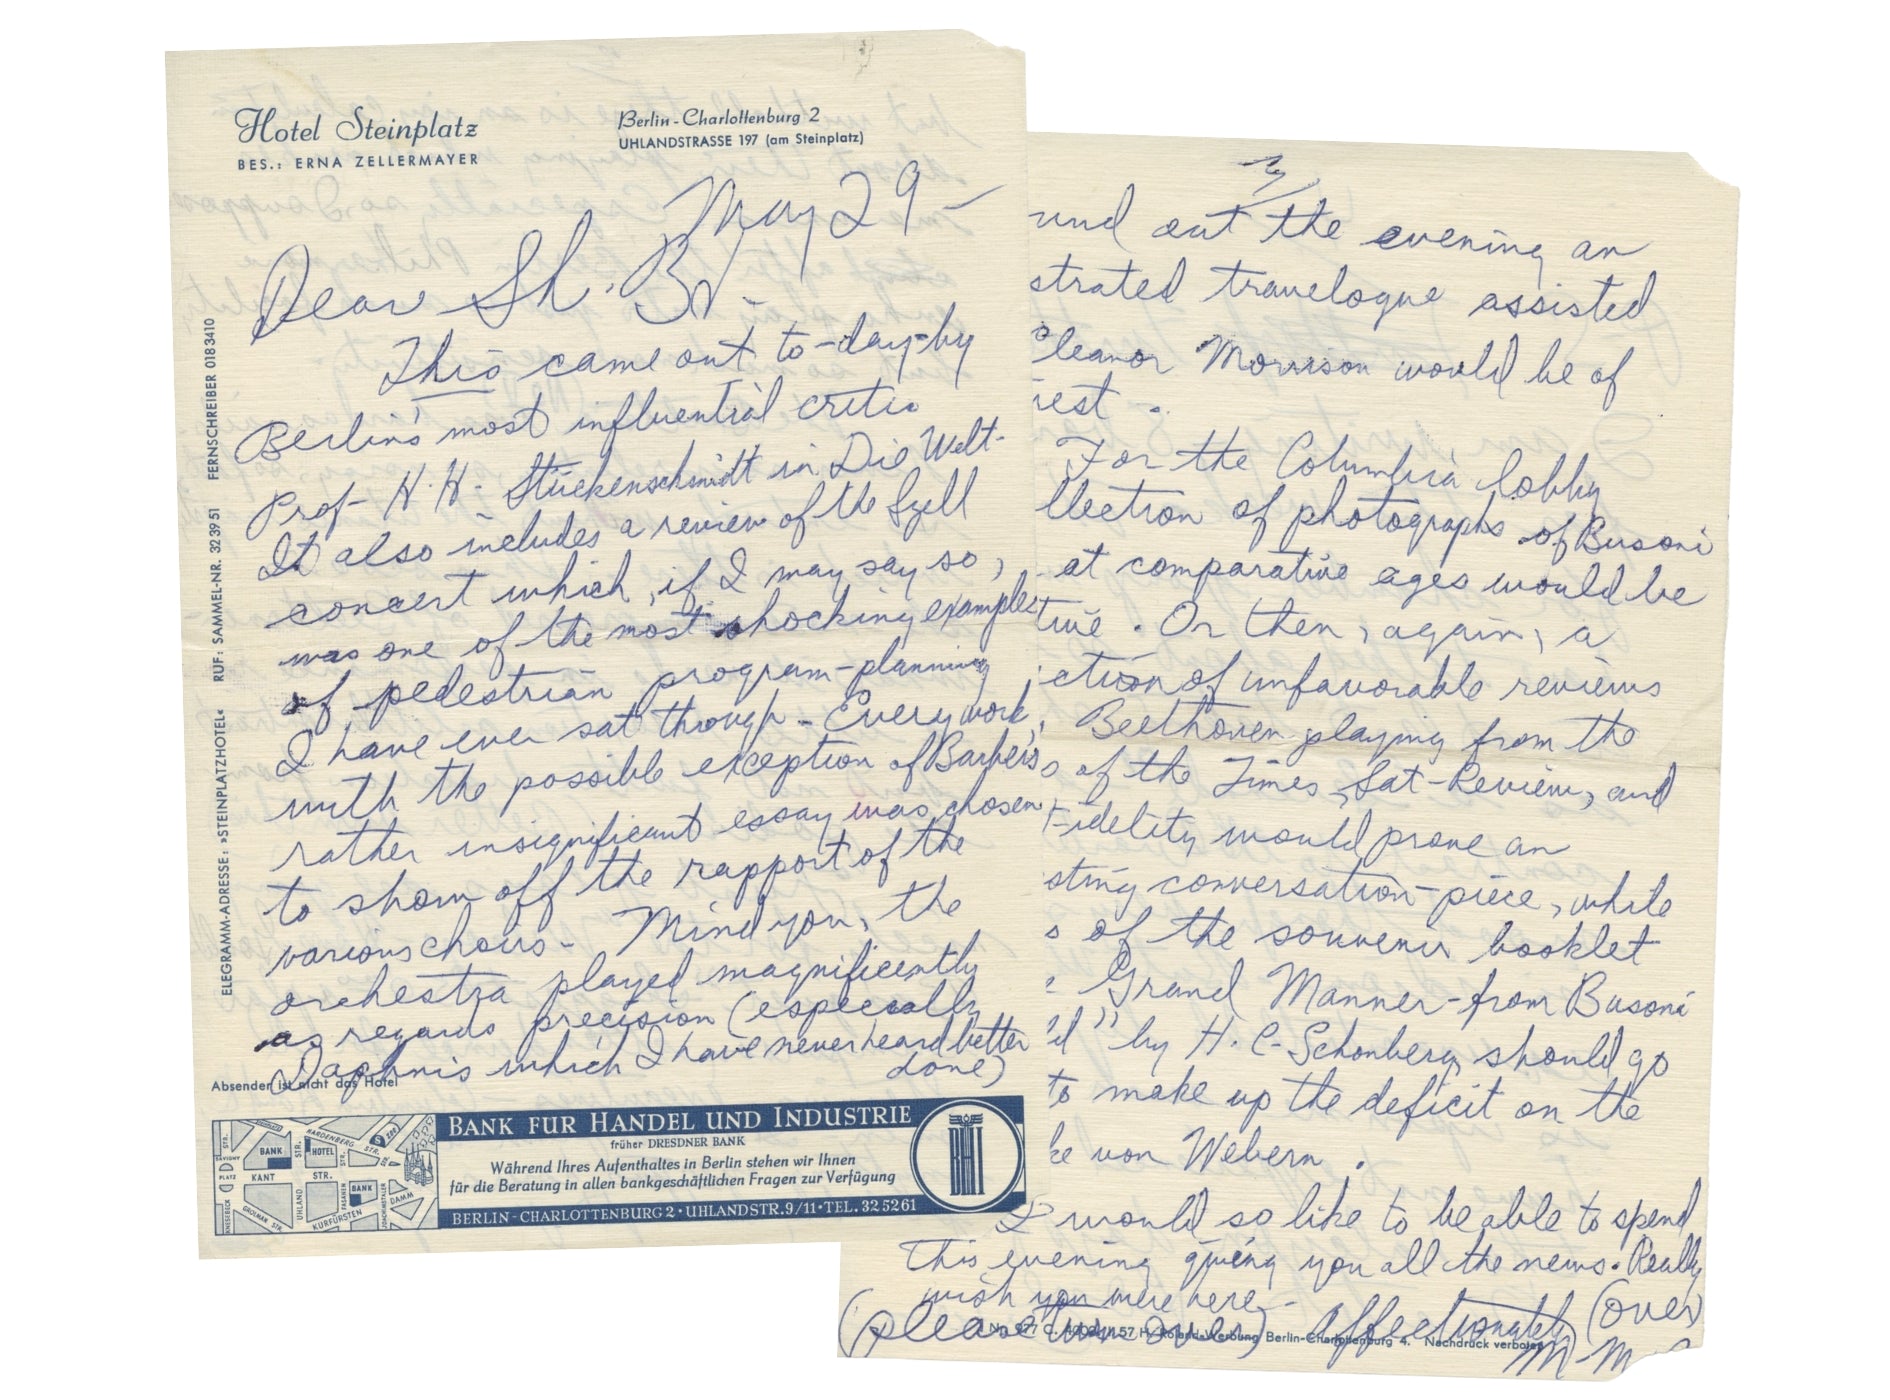 Hotel Steinplatz
BES.: ERNA ZELLERMAYER
Berlin-Charlottenburg 2
UHLANDSTRASSE 197 (am Steinplatz)
May 29 -
Dear Sh. Br.
This came out to-day-by
Berlin's most influential critic
Prof- H. H. Stückenschmidt in Die Welt-
It also includes a review of the Szell
concert which, if I may say so,
was one of the most shocking examples
of pedestrian program-planning
I have ever sat through - Every work,
with the possible exception of Barber's
rather insignificant essay was chosen
to show off the rapport of the
various choirs - Mind you, the
orchestra played magnificently
as regards precision (especially
Daphnis which I have never heard better
done)
Absender ist nicht das Hotel
ELEGRAMM-ADRESSE: »STEINPLATZHOTEL« RUF: SAMMEL-NR. 32 39 51 FERNSCHREIBER 0183410
BANK FÜR HANDEL UND INDUSTRIE
früher DRESDNER BANK
Während Ihres Aufenthaltes in Berlin stehen wir Ihnen
für die Beratung in allen bankgeschäftlichen Fragen zur Verfügung
BERLIN-CHARLOTTENBURG 2 • UHLANDSTR. 9/11 • TEL. 32 52 61
BHI
SAVIGNY PLATZ
HARDENBERG STR.
ZOO
BANK
HOTEL
KANT STR.
UHLAND
FASANEN
BANK
JOACHIMSTALER
DAMM
KNESEBECK
GROLMAN STR.
KURFÜRSTEN
und out the evening an
strated travelogue assisted
Eleanor Morrison would be of
rest.
For the Columbia lobby
llection of photographs of Busoni
at comparative ages would be
tive. Or then, again, a
ection of unfavorable reviews
Beethoven playing from the
s of the Times, Sat-Review, and
Fidelity would prove an
sting conversation-piece, while
s of the souvenir booklet
e Grand Manner-from Busoni
d" by H. C. Schonberg, should go
to make up the deficit on the
ke von Webern.
I would so like to be able to spend
this evening giving you all the news. Really
wish you were here -
(please turn over) affectionately (over)
Berlin-Charlottenburg 4. Nachdruck verboten